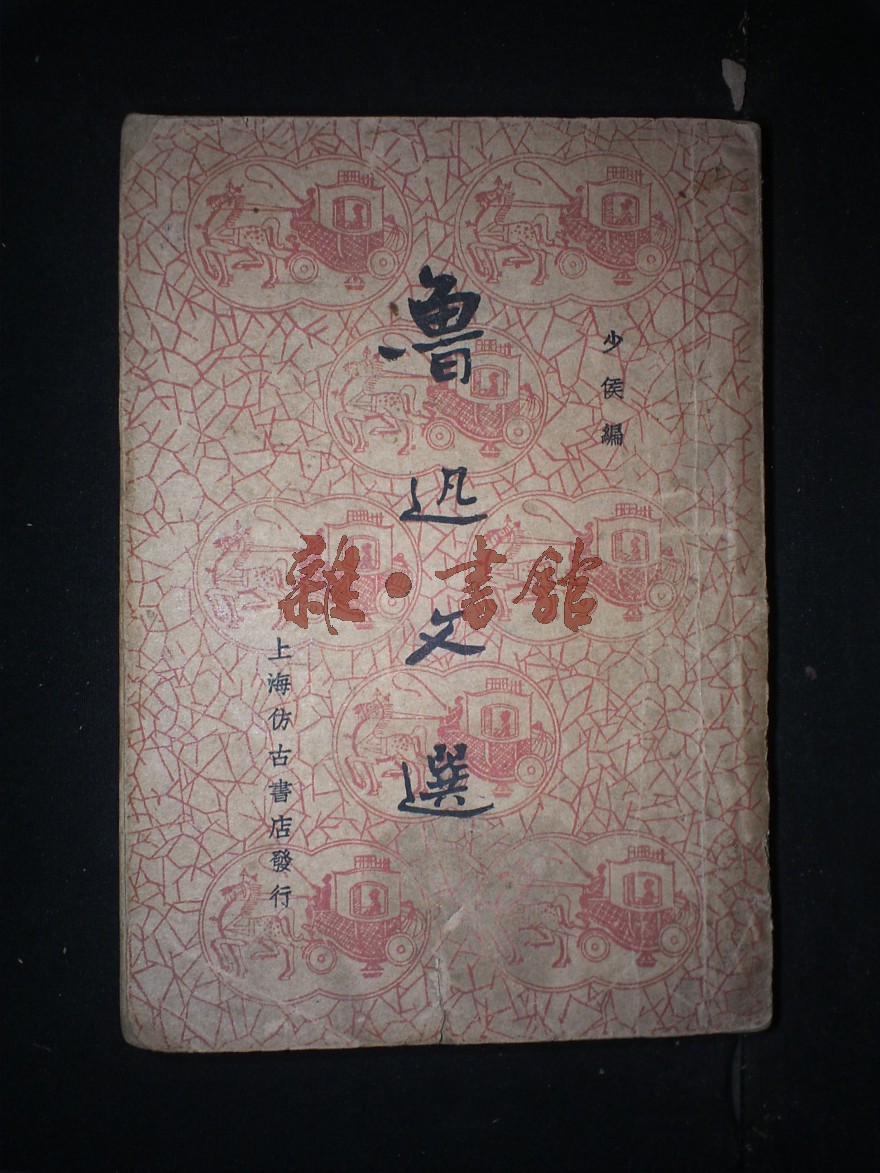 少侯編
魯迅文選
上海仿古書店發行
雜·書館